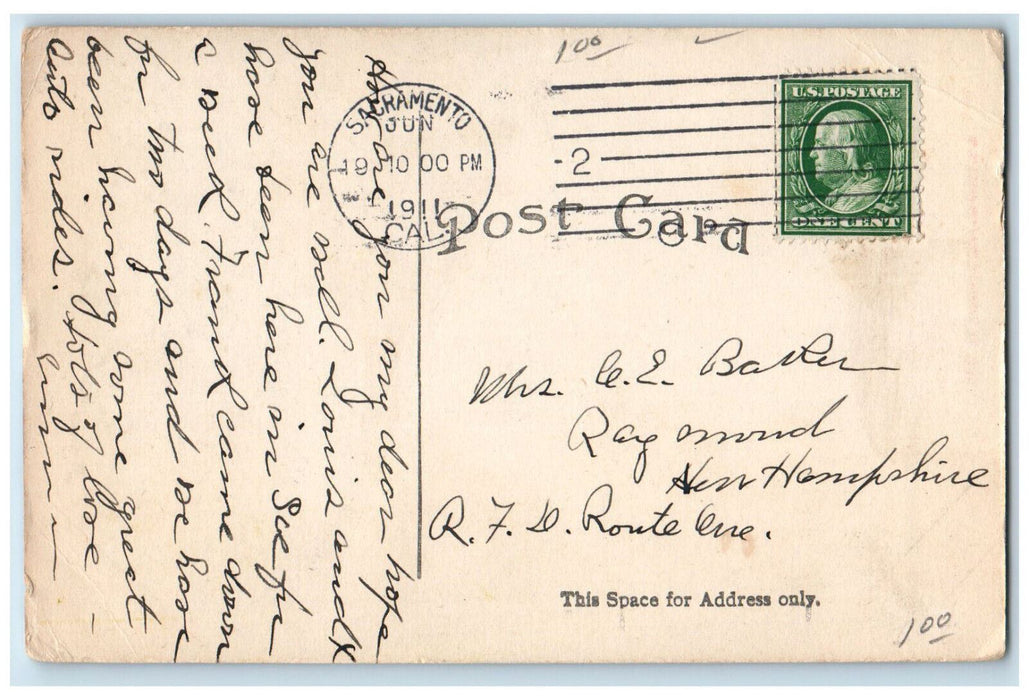 How are you my dear hope
you are well. Louis and I
have been here in Sac for
a week. Frank came down
for two days and we have
been having some great
auto rides. Lots of love –
Emma
SACRAMENTO
JUN
19 10 00 PM
1911
CAL.
2
U.S. POSTAGE
ONE CENT
Post Card
Mrs. C. E. Baker
Raymond
New Hampshire
R. F. D. Route One.
This Space for Address only.
1 00
1 00